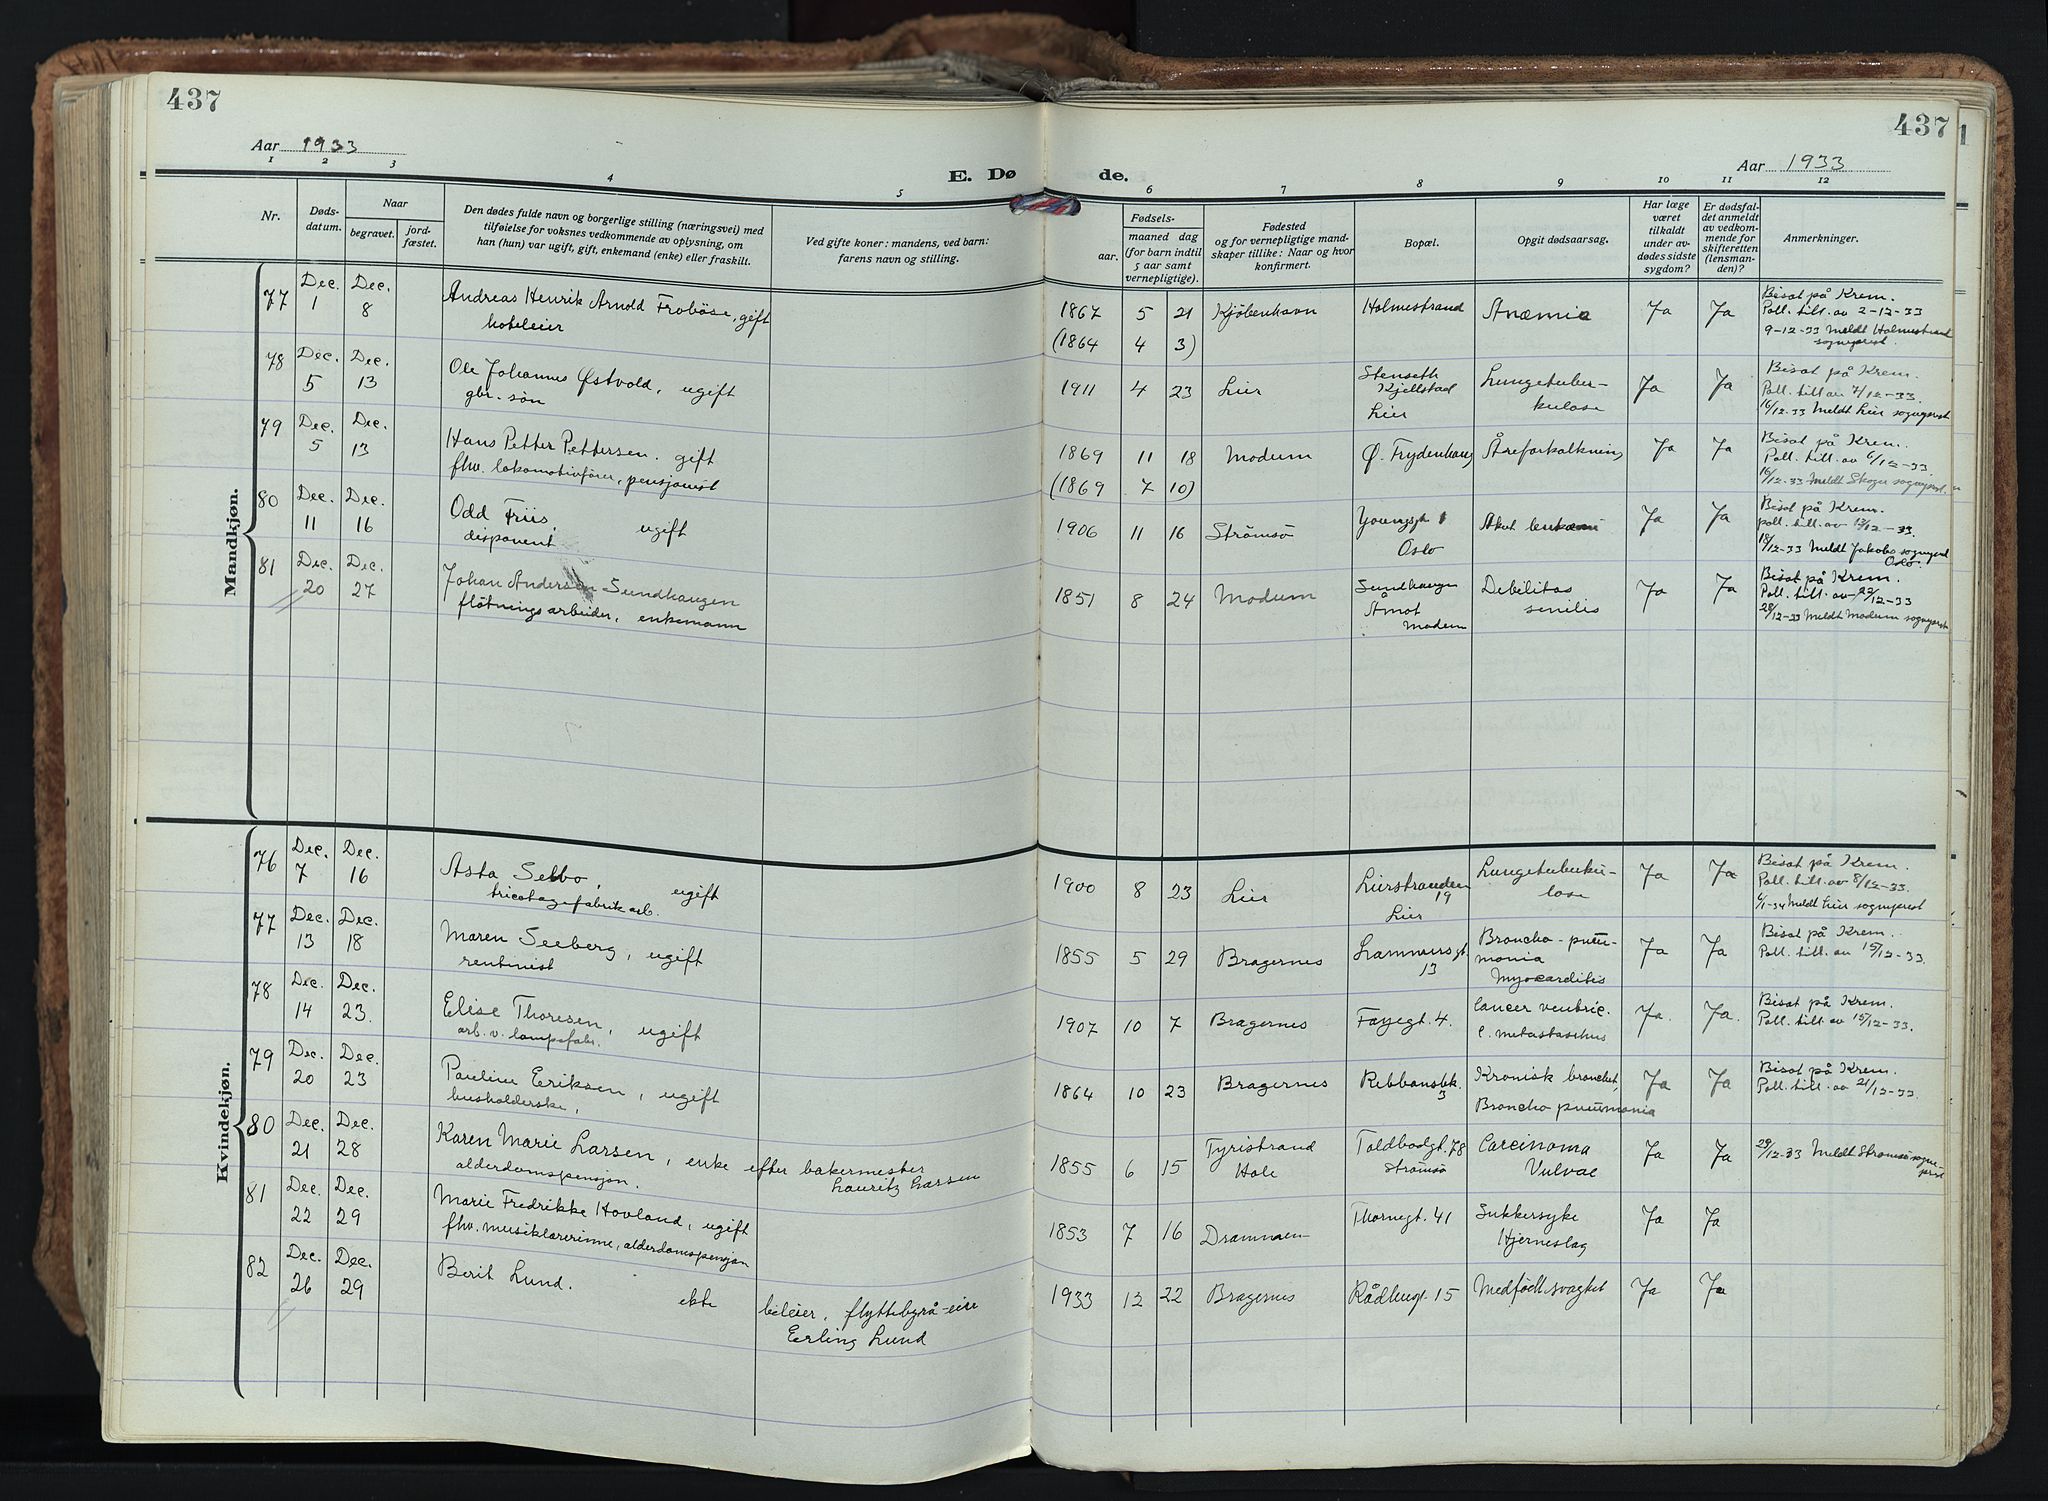 437
Aar 1933
1 2 3 4 5
E. Dø
Nr.
Døds-
datum.
Naar
begravet.
jord-
fæstet.
Den dødes fulde navn og borgerlige stilling (næringsvei) med
tilføielse for voksnes vedkommende av oplysning, om
han (hun) var ugift, gift, enkemand (enke) eller fraskilt.
Ved gifte koner: mandens, ved barn:
farens navn og stilling.
437
Aar 1933
de.
6 7 8 9 10 11 12
Fødsels-
aar.
maaned dag
(for barn indtil
5 aar samt
vernepligtige).
Fødested
og for vernepligtige mand-
skaper tillike: Naar og hvor
konfirmert.
Bopæl.
Opgit dødsaarsag.
Har læge
været
tilkaldt
under av-
dødes sidste
sygdom?
Er dødsfal-
det anmeldt
av vedkom-
mende for
skifteretten
(lensman-
den)?
Anmerkninger.
Mandkjøn.
77 Dec. 1 Dec. 8 Andreas Henrik Arnold Froböse, gift
hoteleier
1867 5 21 Kjöbenhavn Holmestrand Anæmia Ja Ja Bisat på Krem.
Poll. till. av 2-12-33
9-12-33 Meldt Holmestrand
sogneprest.
(1864 4 3)
78 Dec. 5 Dec. 13 Ole Johannes Østvold, ugift
gbr. sön
1911 4 23 Lier Stenseth
Kjellstad
Lier
Lungetuber-
kulose
Ja Ja Bisat på Krem.
Poll. till av 7/12-33.
16/12-33 Meldt Lier sogneprest
79 Dec. 5 Dec. 13 Hans Petter Pettersen. gift
fhv. lokomotivfører, pensjonist
1869 11 18 Modum Ø. Frydenhaug Åreforkalkning Ja Ja Bisat på Krem.
Poll. till. av 6/12-33.
16/12-33 Meldt Skoger sogneprest.
(1869 7 10)
80 Dec. 11 Dec. 16 Odd Friis, ugift
disponent
1906 11 16 Strømsö Youngsgt 1
Oslo
Akut leukæmi Ja Ja Bisat på Krem.
poll. till. av 13/12-33.
18/12-33 Meldt Jakobs sogneprest
Oslo.
81 Dec. 20 Dec. 27 Johan Andersen Sundhaugen
flötningsarbeider, enkemann
1851 8 24 Modum Sundhaugen
Åmot
Modum
Debilitas
senilis
Ja Ja Bisat på Krem.
Poll. till. av 22/12-33
28/12-33 Meldt Modum sogneprest
Kvindekjøn.
76 Dec. 7 Dec. 16 Asta Selbo, ugift
tricotagefabrik arb.
1900 8 23 Lier Lierstranden
19
Lier
Lungetuberku-
lose
Ja Ja Bisat på Krem.
Poll. till. av 8/12-33.
6/1-34 Meldt Lier sogneprest
77 Dec. 13 Dec. 18 Maren Seeberg, ugift
rentenist
1855 5 29 Bragernes Lammersgt.
13
Broncho-pneu-
monia
Myocarditis
Ja Ja Bisat på Krem.
Poll. till. av 15/12-33.
78 Dec. 14 Dec. 23. Elise Thoresen, ugift
arb. v. lampefabr.
1907 10 7 Bragernes Fayegt. 4. Cancer ventric.
c. metastasibus
Ja. Ja. Bisat på Krem.
Poll. till av 15/12-33.
79 Dec. 20 Dec. 23 Pauline Eriksen, ugift
husholderske,
1864 10 23 Bragernes Ribbansbk.
3
Kronisk bronchit,
Broncho pneumonia
Ja Ja Bisat på Krem.
Poll. till. av 21/12-33.
80 Dec. 21 Dec. 28 Karen Marie Larsen, enke efter bakermester
alderdomspensjon. Lauritz Larsen
1855 6 15 Tyristrand
Hole
Toldbodgt. 78
Strømsö
Carcinoma
Vulvae
Ja Ja 29/12-33 Meldt Strømsö sogne-
prest
81 Dec. 22 Dec. 29 Marie Fredrikke Hovland, ugift
fhv. musiklærerinne, alderdomspensjon
1853 7 16 Drammen Thornegt. 41 Sukkersyke
Hjerneslag
Ja Ja
82 Dec. 26 Dec. 29 Berit Lund. ekte bileier, flyttebyrå-eier
Erling Lund
1933 12 22 Bragernes Rådhusgt. 15 Medfödt svaghet Ja Ja